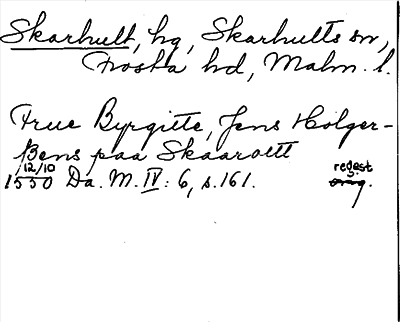 Skarhult, hg, Skarhults sn,
Frosta hd, Malm. l.
Frue Byrgitte, Jens Holger-
sens paa Skaaroltt
12/10 regest
1530 Da. M. IV: 6, s. 161. orig.